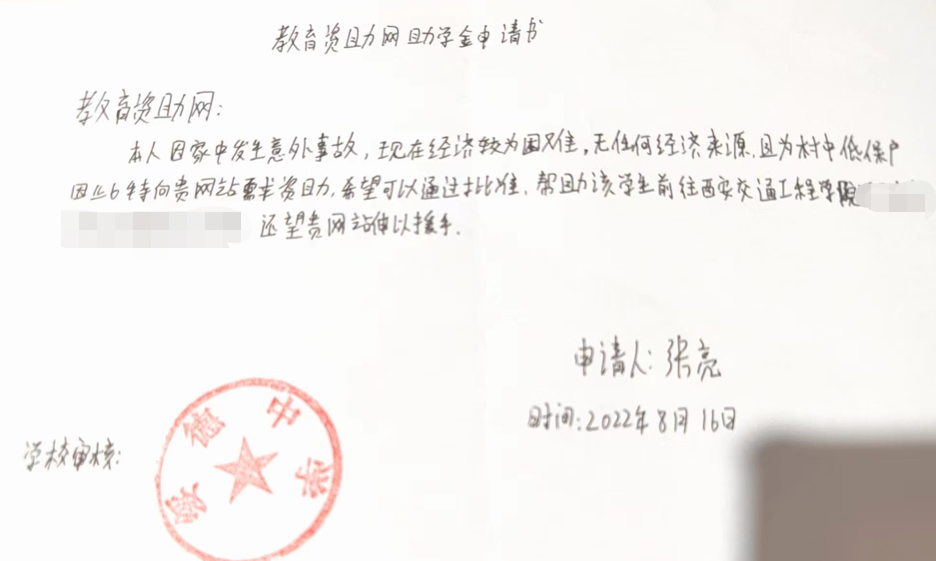 教育资助网助学金申请书
教育资助网:
本人因家中发生意外事故,现在经济较为困难,无任何经济来源.且为村中低保户
因此特向贵网站需求资助,希望可以通过批准.帮助该学生前往西安交通工程学院
还望贵网站伸以援手.
申请人:张亮
时间:2022年8月16日
学校审核:
德中学